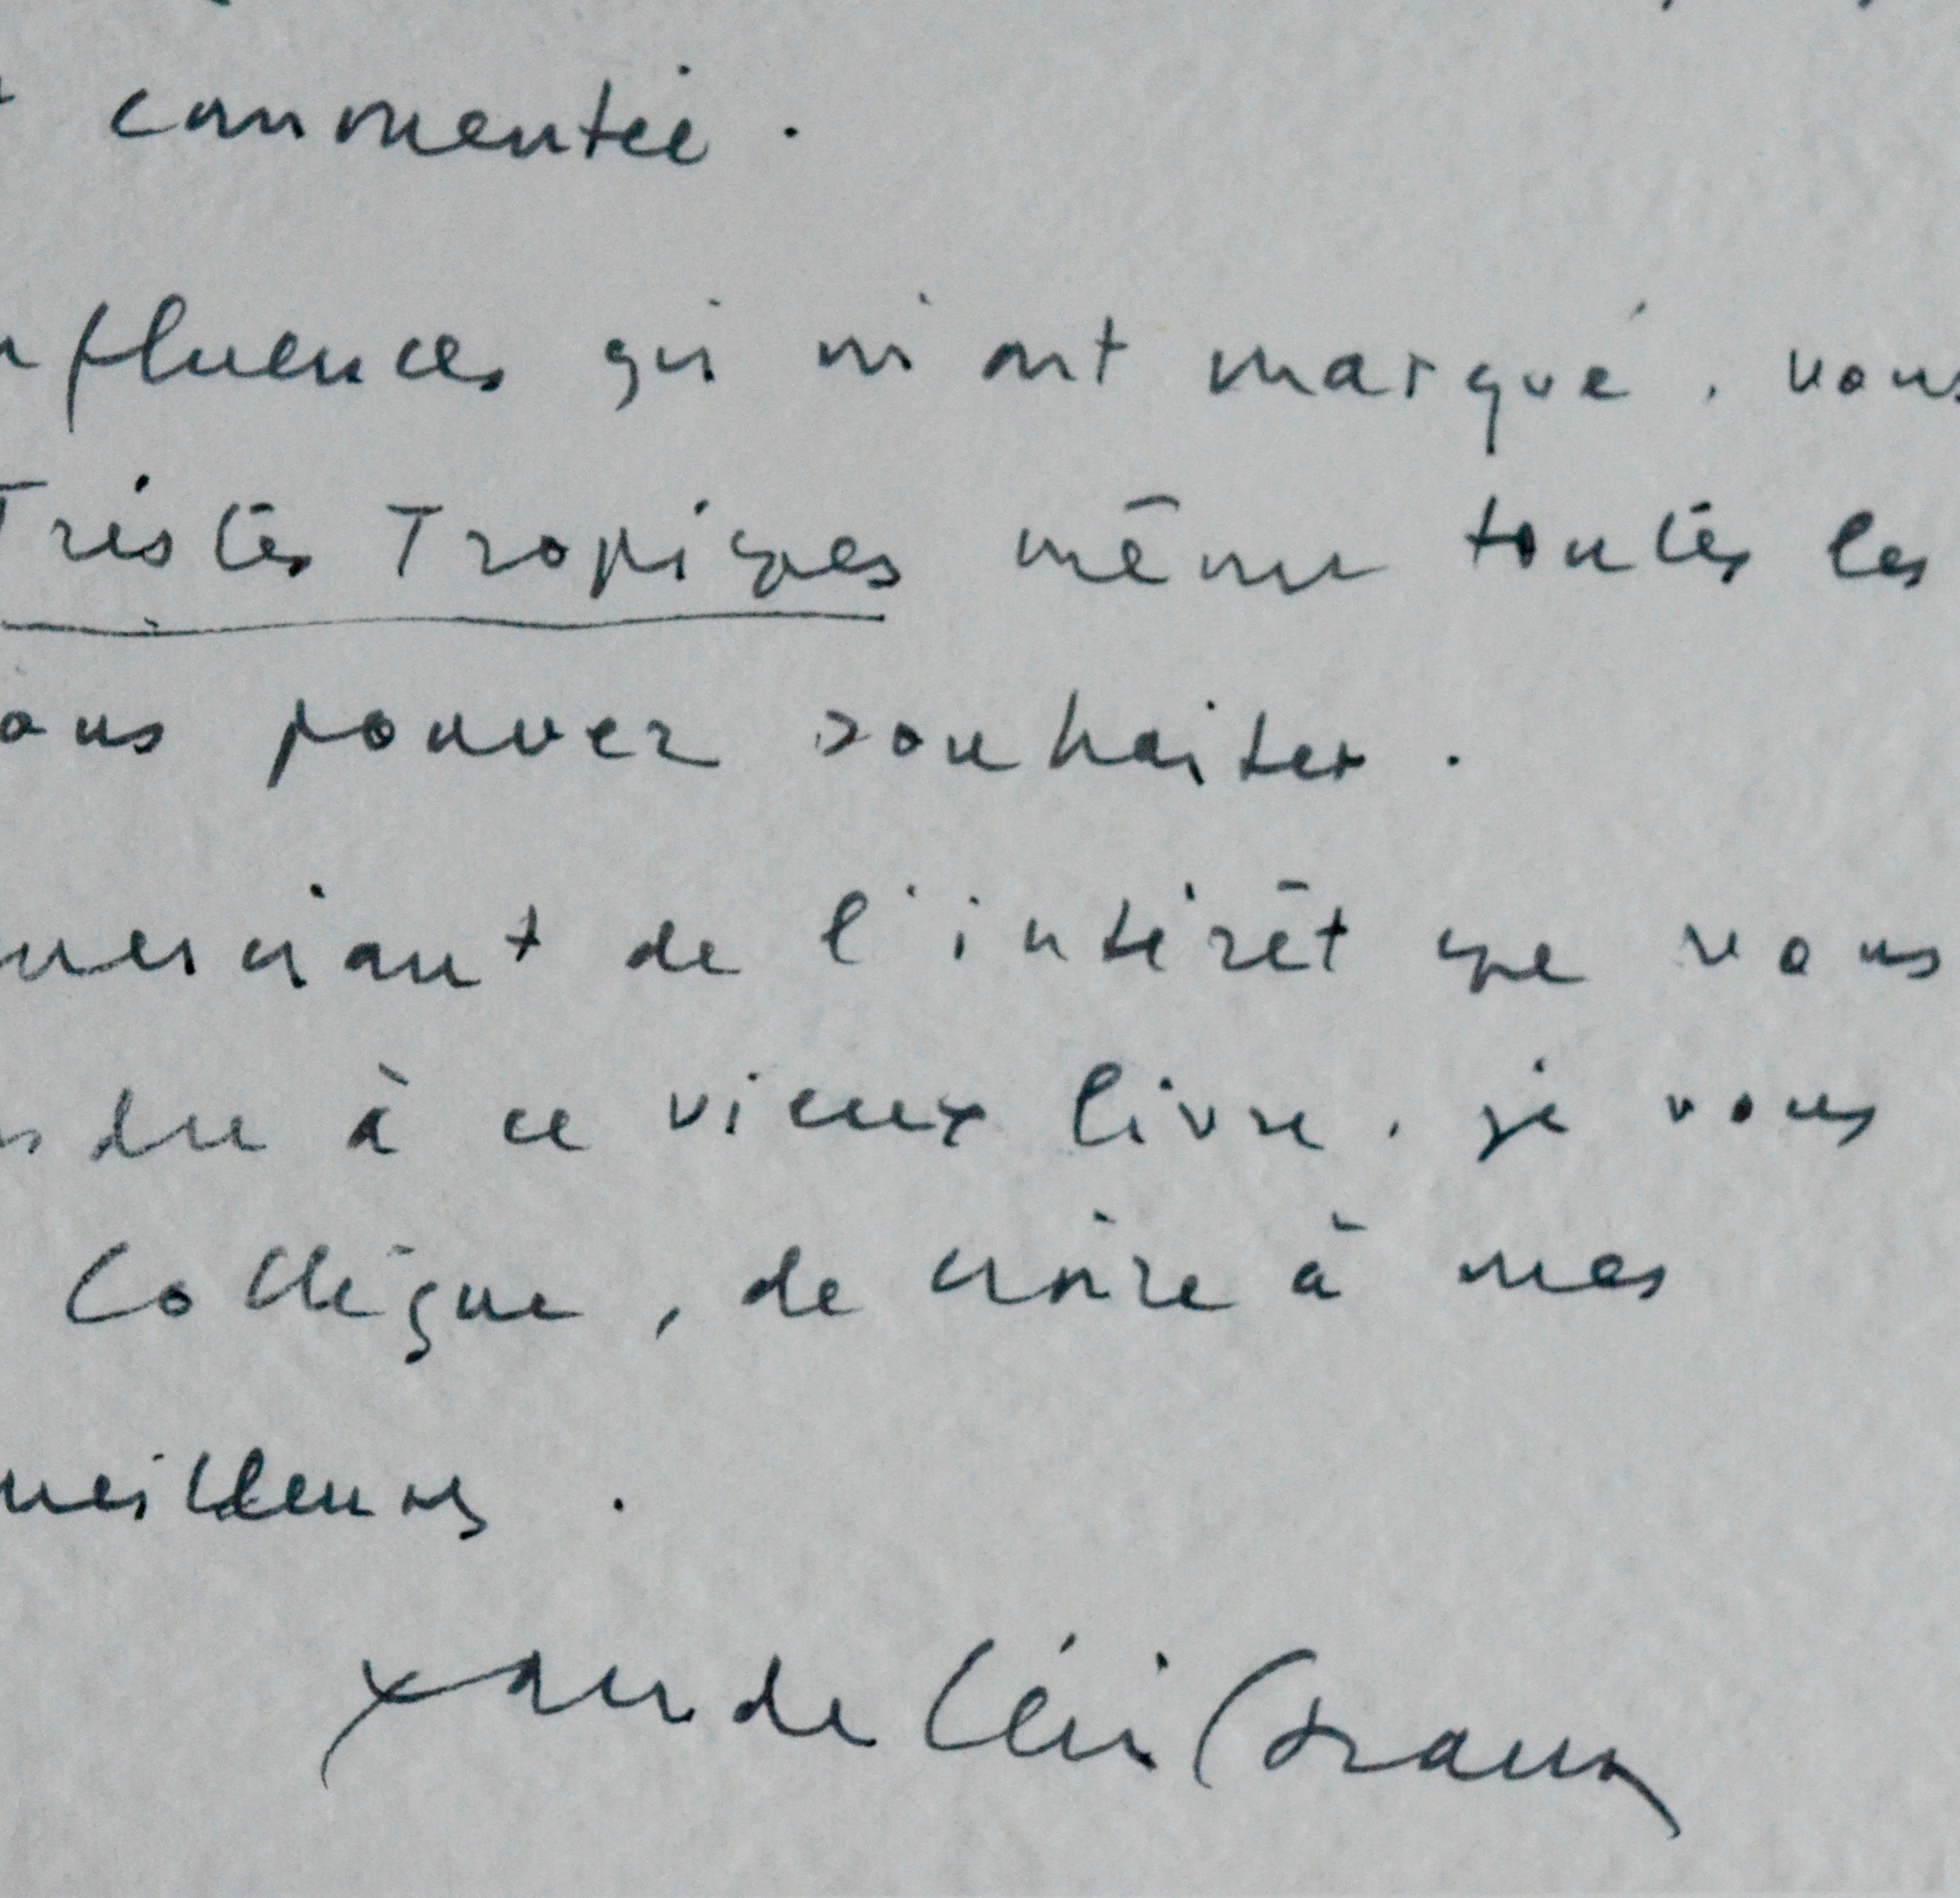 commentée.
nfluences qui m'ont marqué, vous
Tristes Tropiques même toutes les
ous pouvez souhaiter.
merciant de l'intérêt que vous
ndre à ce vieux livre, je vous
Collègue, de croire à mes
meilleurs.
Claude Lévi-Strauss